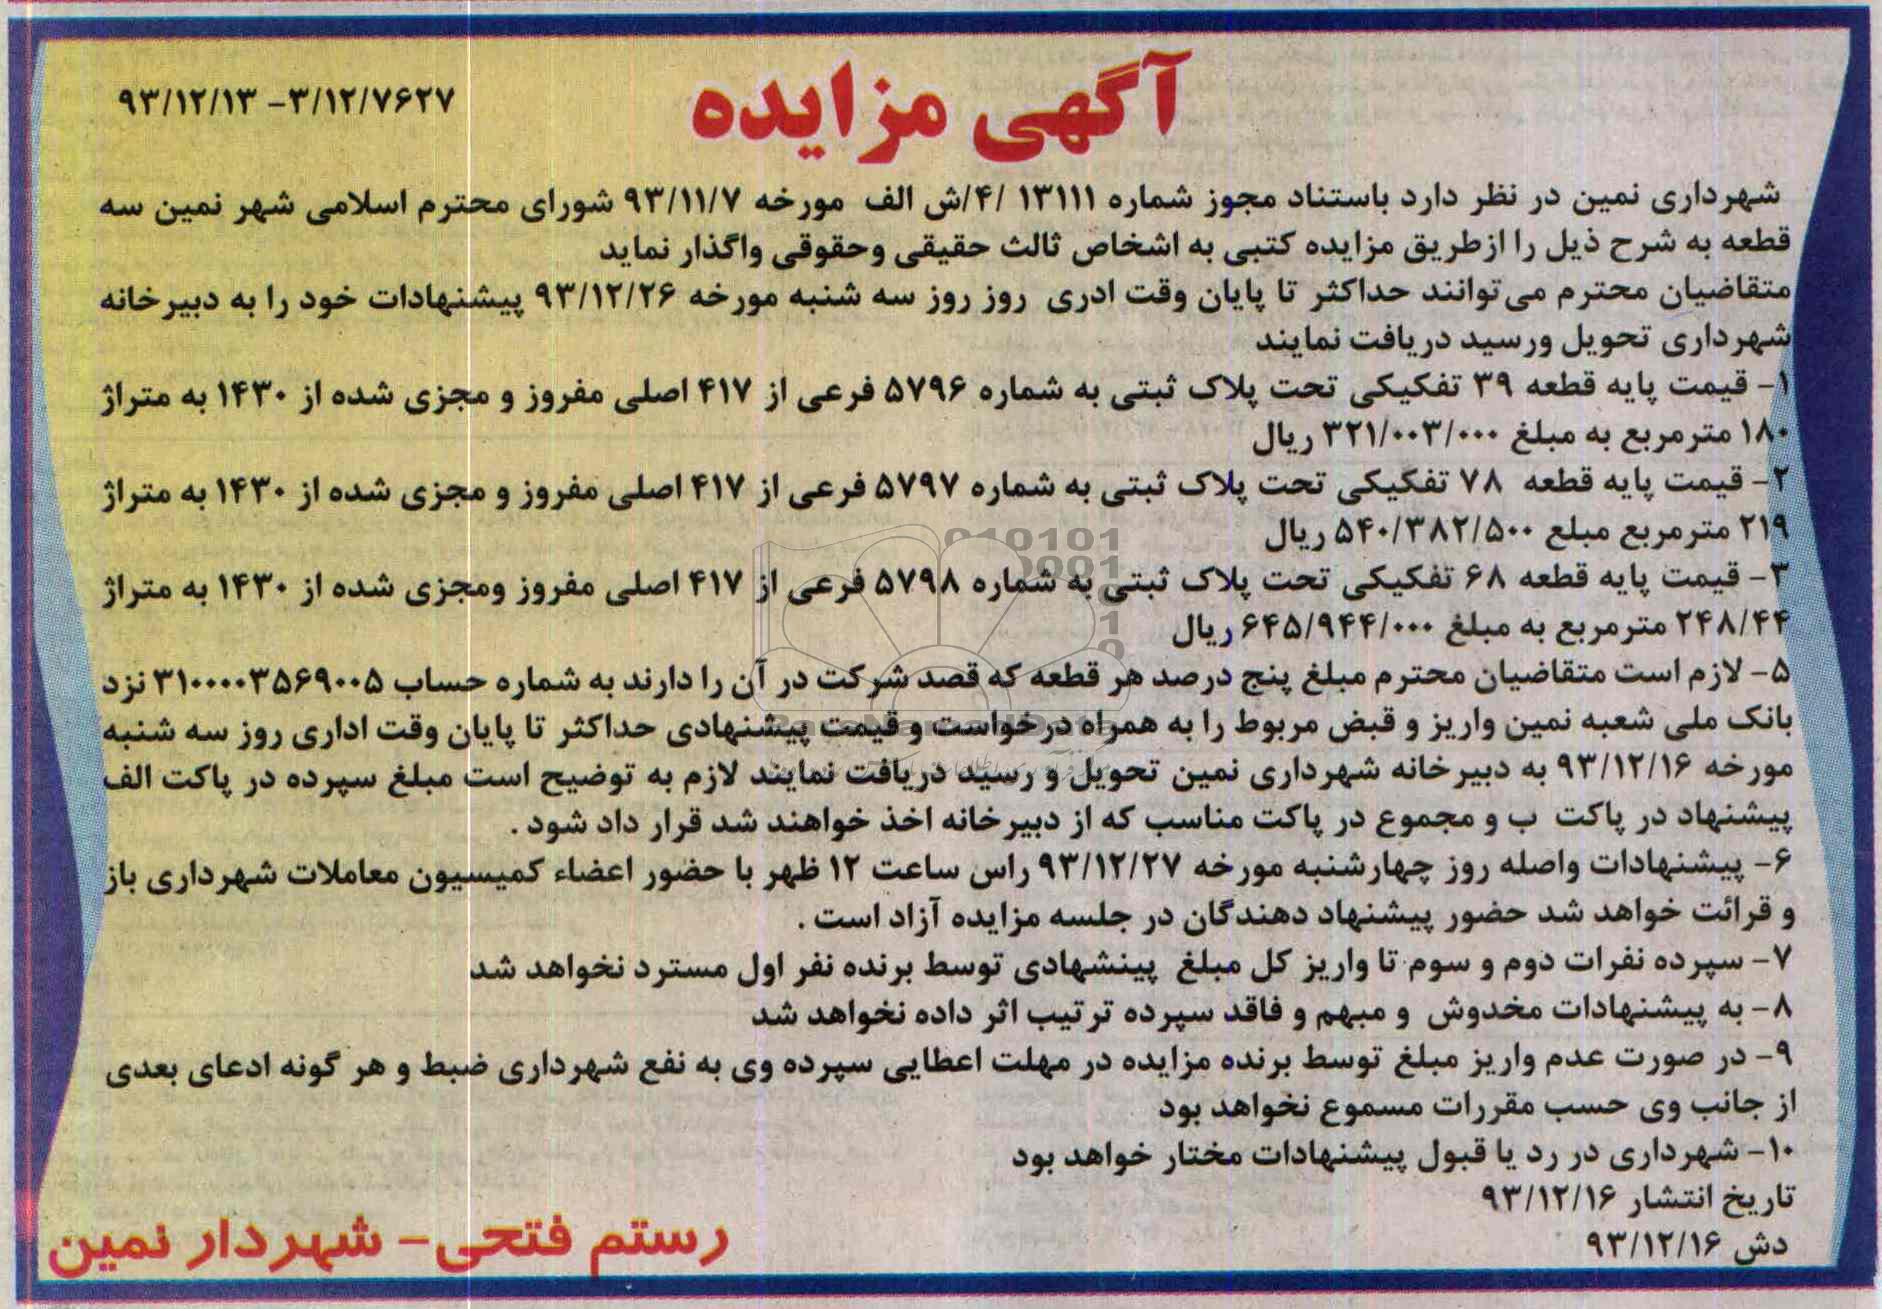 آگهی مزایده
۳/۱۲/۷۶۲۷ -۹۳/۱۲/۱۳
شهرداری نمین در نظر دارد باستناد مجوز شماره ۱۳۱۱۱ /۴/ش الف مورخه ۹۳/۱۱/۷ شورای محترم اسلامی شهر نمین سه
قطعه به شرح ذیل را ازطریق مزایده کتبی به اشخاص ثالث حقیقی وحقوقی واگذار نماید
متقاضیان محترم می‌توانند حداکثر تا پایان وقت ادری روز روز سه شنبه مورخه ۹۳/۱۲/۲۶ پیشنهادات خود را به دبیرخانه
شهرداری تحویل ورسید دریافت نمایند
۱- قیمت پایه قطعه ۳۹ تفکیکی تحت پلاک ثبتی به شماره ۵۷۹۶ فرعی از ۴۱۷ اصلی مفروز و مجزی شده از ۱۴۳۰ به متراژ
۱۸۰ مترمربع به مبلغ ۳۲۱/۰۰۳/۰۰۰ ریال
۲- قیمت پایه قطعه ۷۸ تفکیکی تحت پلاک ثبتی به شماره ۵۷۹۷ فرعی از ۴۱۷ اصلی مفروز و مجزی شده از ۱۴۳۰ به متراژ
۲۱۹ مترمربع مبلع ۵۴۰/۳۸۲/۵۰۰ ریال
۳- قیمت پایه قطعه ۶۸ تفکیکی تحت پلاک ثبتی به شماره ۵۷۹۸ فرعی از ۴۱۷ اصلی مفروز ومجزی شده از ۱۴۳۰ به متراژ
۲۴۸/۴۴ مترمربع به مبلغ ۶۴۵/۹۴۴/۰۰۰ ریال
۵- لازم است متقاضیان محترم مبلغ پنج درصد هر قطعه که قصد شرکت در آن را دارند به شماره حساب ۳۱۰۰۰۰۳۵۶۹۰۰۵ نزد
بانک ملی شعبه نمین واریز و قبض مربوط را به همراه درخواست و قیمت پیشنهادی حداکثر تا پایان وقت اداری روز سه شنبه
مورخه ۹۳/۱۲/۱۶ به دبیرخانه شهرداری نمین تحویل و رسید دریافت نمایند لازم به توضیح است مبلغ سپرده در پاکت الف
پیشنهاد در پاکت ب و مجموع در پاکت مناسب که از دبیرخانه اخذ خواهند شد قرار داد شود .
۶- پیشنهادات واصله روز چهارشنبه مورخه ۹۳/۱۲/۲۷ راس ساعت ۱۲ ظهر با حضور اعضاء کمیسیون معاملات شهرداری باز
و قرائت خواهد شد حضور پیشنهاد دهندگان در جلسه مزایده آزاد است .
۷- سپرده نفرات دوم و سوم تا واریز کل مبلغ پینشهادی توسط برنده نفر اول مسترد نخواهد شد
۸- به پیشنهادات مخدوش و مبهم و فاقد سپرده ترتیب اثر داده نخواهد شد
۹- در صورت عدم واریز مبلغ توسط برنده مزایده در مهلت اعطایی سپرده وی به نفع شهرداری ضبط و هر گونه ادعای بعدی
از جانب وی حسب مقررات مسموع نخواهد بود
۱۰- شهرداری در رد یا قبول پیشنهادات مختار خواهد بود
تاریخ انتشار ۹۳/۱۲/۱۶
دش ۹۳/۱۲/۱۶
رستم فتحی- شهردار نمین